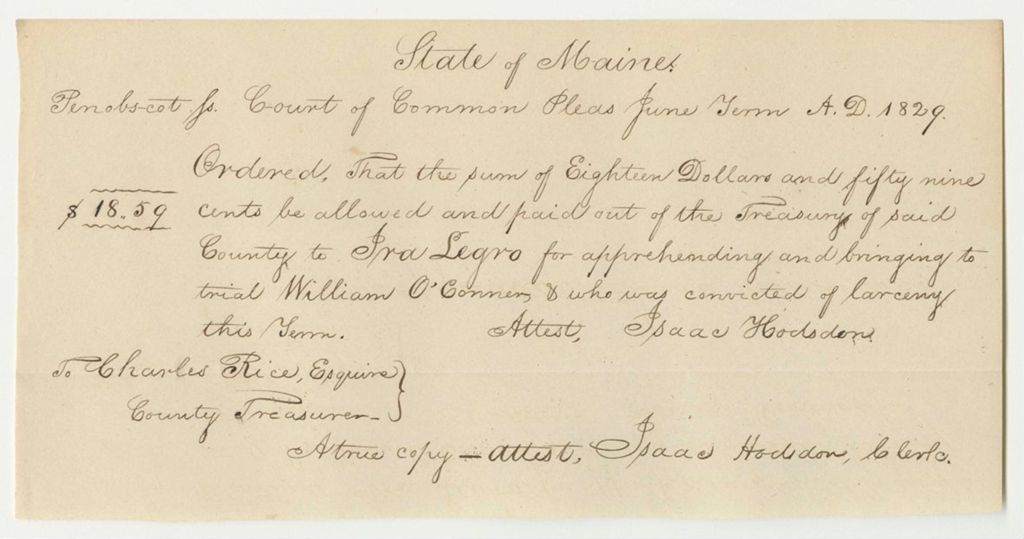 State of Maine.
Penobscot ss. Court of Common Pleas June Term A.D. 1829.
Ordered, That the sum of Eighteen Dollars and fifty nine
$ 18.59 cents be allowed and paid out of the Treasury of said
County to Ira Legro for apprehending and bringing to
trial William O'Conner, & who was convicted of larceny
this Term. Attest, Isaac Hodsdon.
To Charles Rice, Esquire
County Treasurer
A true copy — attest, Isaac Hodsdon, Clerk.